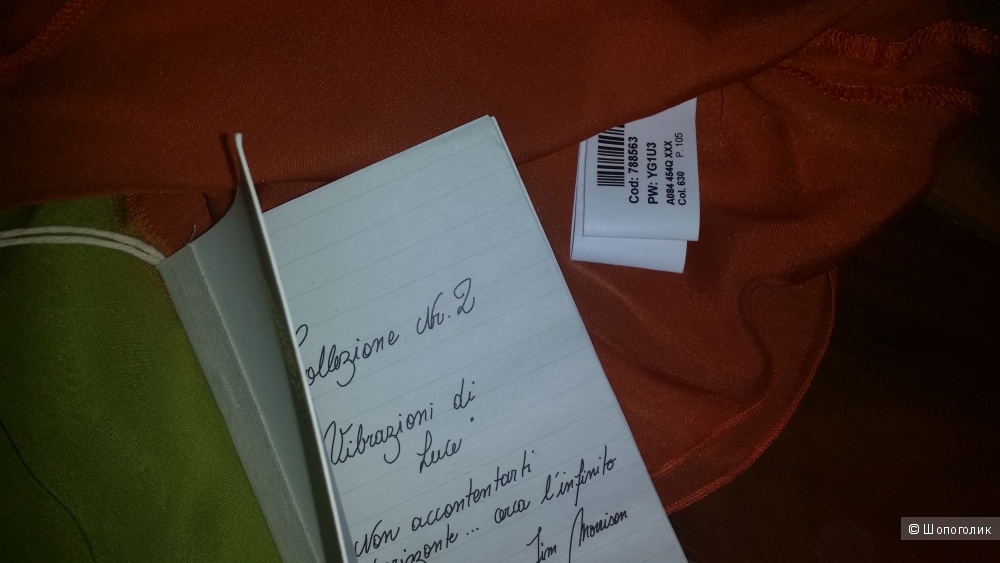 Cod: 788563
PW: YG1U3
A084 454Q XXX
Col. 630 P. 105
Collezione Nr. 2
"Vibrazioni di
Luce"
Non accontentarti
orizzonte... cerca l'infinito
Jim Morrison
© Шопоголик